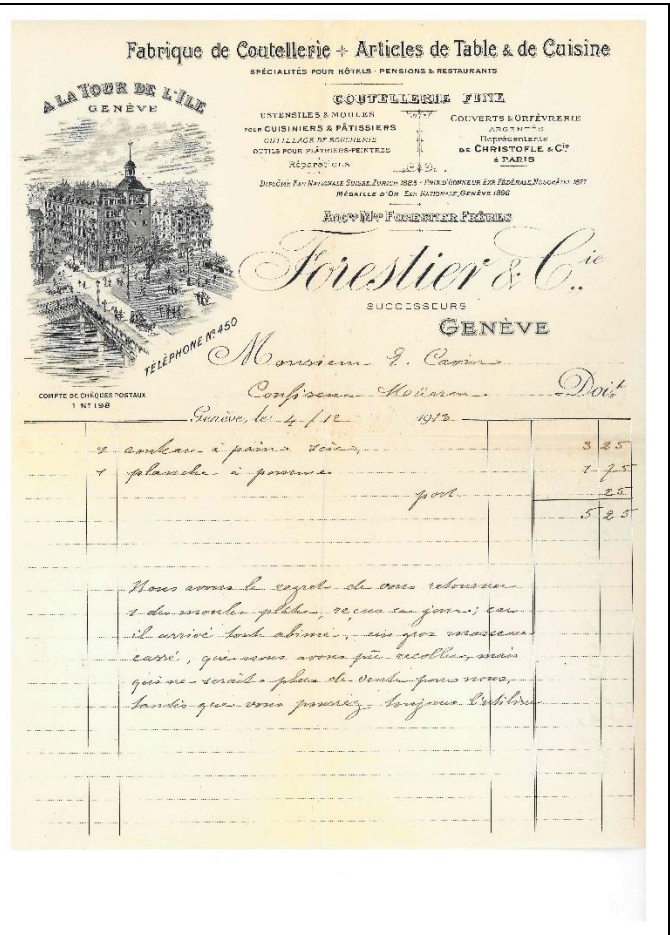 Fabrique de Coutellerie + Articles de Table & de Cuisine
SPÉCIALITÉS POUR HÔTELS - PENSIONS & RESTAURANTS
A LA TOUR DE L'ILE
GENÈVE
COUTELLERIE FINE
USTENSILES & MOULES
POUR CUISINIERS & PÂTISSIERS
OUTILLAGE DE BOUCHERIE
OUTILS POUR PLÂTRIERS-PEINTRES
Réparations
COUVERTS & ORFÈVRERIE
ARGENTÉS
Représentants
DE CHRISTOFLE & Cie
à PARIS
DIPLÔME EXP. NATIONALE SUISSE, ZURICH 1883 - PRIX D'HONNEUR EXP. FÉDÉRALE, 
MÉDAILLE D'OR EXP. NATIONALE, GENÈVE 1896
ANCne Mon FORESTIER FRÈRES
Forestier & Cie
SUCCESSEURS
GENÈVE
TÉLÉPHONE No 450
Monsieur E.
Confiseur Mürren Doit
COMPTE DE CHÈQUES POSTAUX
1 No 198
Genève, le 4/12 1913
1 couteau à pain scie, 3 25
1 planche à pommes 1 75
port 25
5 25
Nous avons le regret de vous retourner
1 des moules plâtre, reçus ce jour; car
il arrivé tout abimé, un gros morceau
cassé, que nous avons pu recoller, mais
qui ne serait plus de vente pour nous,
tandis que vous pourrez toujours l'utiliser